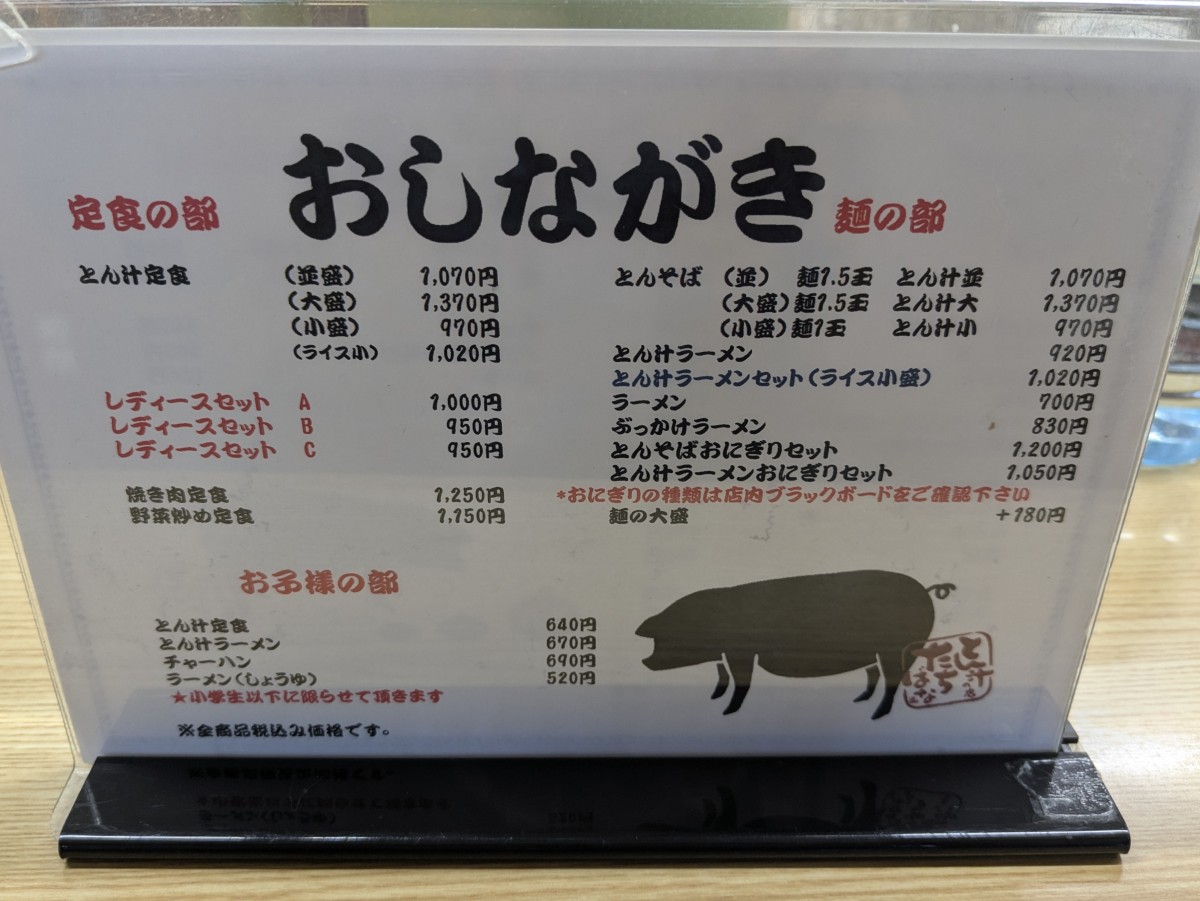 おしながき
定食の部
とん汁定食 (並盛) 1,070円
(大盛) 1,370円
(小盛) 970円
(ライス小) 1,020円
レディースセット A 1,000円
レディースセット B 950円
レディースセット C 950円
焼き肉定食 1,250円
野菜炒め定食 1,150円
麺の部
とんそば (並) 麺1.5玉 とん汁並 1,070円
(大盛) 麺1.5玉 とん汁大 1,370円
(小盛) 麺1玉 とん汁小 970円
とん汁ラーメン 920円
とん汁ラーメンセット(ライス小盛) 1,020円
ラーメン 700円
ぶっかけラーメン 830円
とんそばおにぎりセット 1,200円
とん汁ラーメンおにぎりセット 1,050円
*おにぎりの種類は店内ブラックボードをご確認下さい
麺の大盛 +180円
お子様の部
とん汁定食 640円
とん汁ラーメン 670円
チャーハン 690円
ラーメン(しょうゆ) 520円
★小学生以下に限らせて頂きます
※全商品税込み価格です。
とん汁の店
たちばな